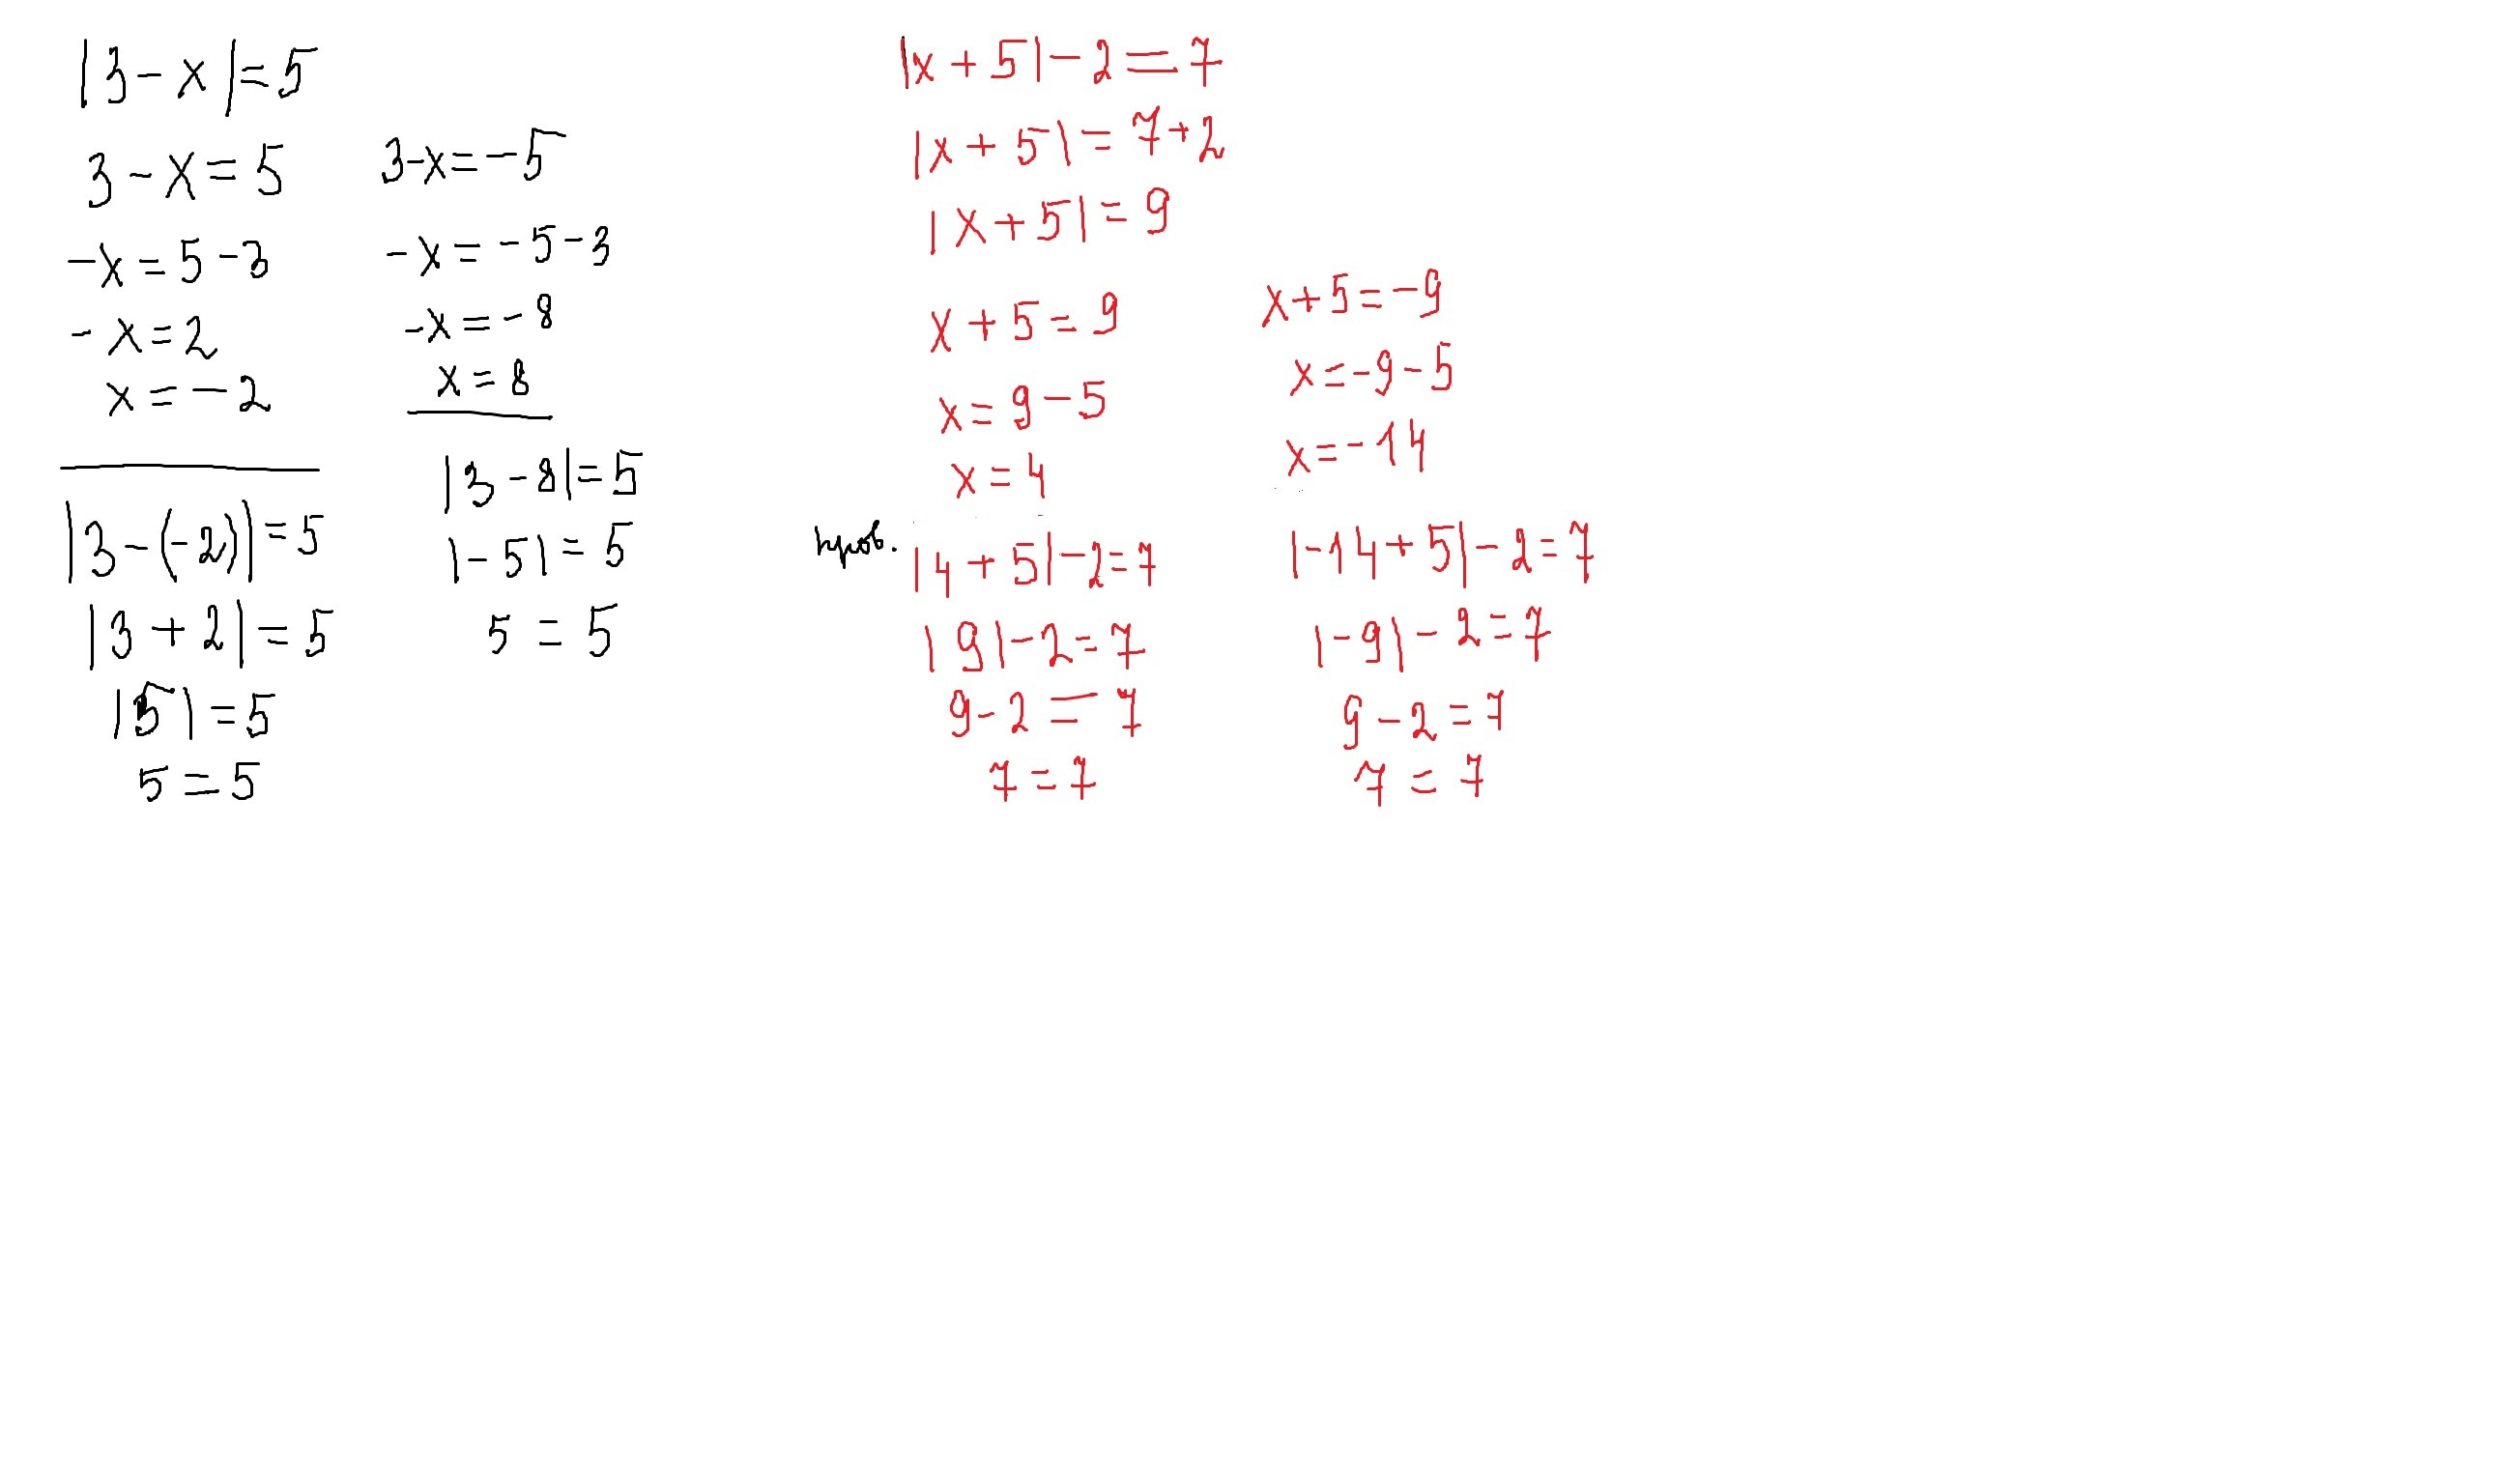 |3 - x| = 5
3 - x = 5
-x = 5 - 3
-x = 2
x = -2
|3 - (-2)| = 5
|3 + 2| = 5
|5| = 5
5 = 5
3 - x = -5
-x = -5 - 3
-x = -8
x = 8
|3 - 8| = 5
|-5| = 5
5 = 5
|x + 5| - 2 = 7
|x + 5| = 7 + 2
|x + 5| = 9
x + 5 = 9
x = 9 - 5
x = 4
пров.
|4 + 5| - 2 = 7
|9| - 2 = 7
9 - 2 = 7
7 = 7
x + 5 = -9
x = -9 - 5
x = -14
|-14 + 5| - 2 = 7
|-9| - 2 = 7
9 - 2 = 7
7 = 7